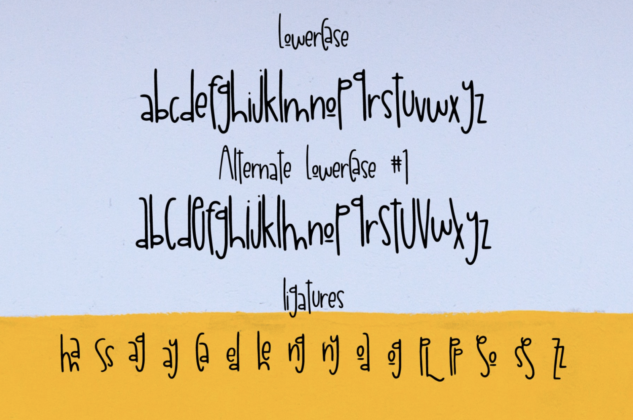 LowerCase
abcdefghijklmnopqrstuvwxyz
Alternate LowerCase #1
abcdefghijklmnopqrstuvwxyz
ligatures
ha ss ag ay Ca ed he ng ny od og pL pp So sp zz